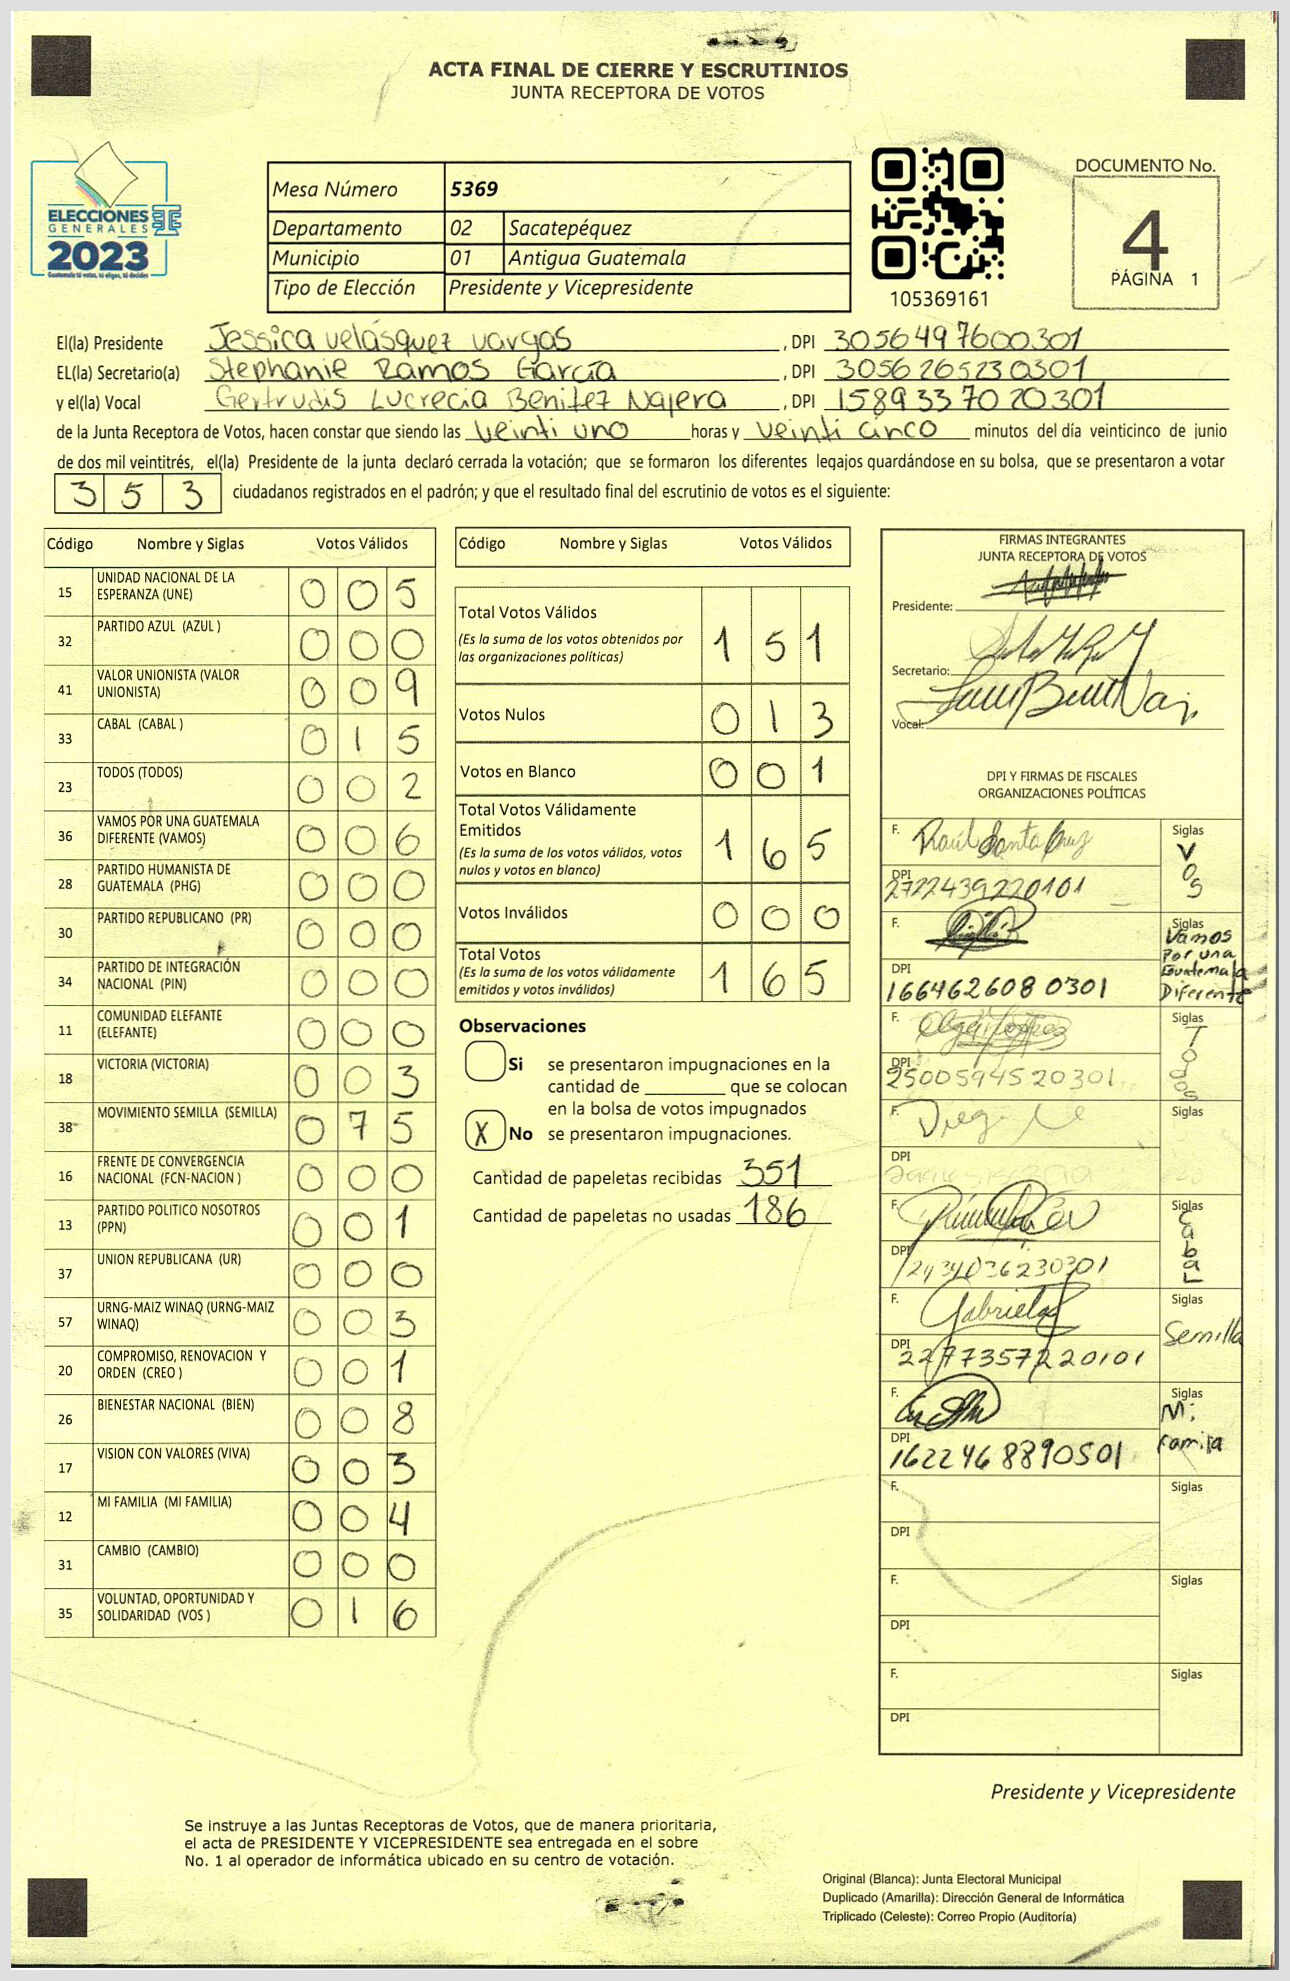 ACTA FINAL DE CIERRE Y ESCRUTINIOS
JUNTA RECEPTORA DE VOTOS
ELECCIONES
GENERALES
2023
Guatemala tú votas, tú eliges, tú decides
Mesa Número 5369
Departamento 02 Sacatepéquez
Municipio 01 Antigua Guatemala
Tipo de Elección Presidente y Vicepresidente
105369161
DOCUMENTO No.
4
PÁGINA 1
El(la) Presidente Jessica Velásquez Vargas, DPI 3056497600301
EL(la) Secretario(a) Stephanie Ramos García, DPI 3056265230301
y el(la) Vocal Gertrudis Lucrecia Benitez Najera, DPI 1589337020301
de la Junta Receptora de Votos, hacen constar que siendo las veinti uno horas y veinti cinco minutos del día veinticinco de junio
de dos mil veintitrés, el(la) Presidente de la junta declaró cerrada la votación; que se formaron los diferentes legajos guardándose en su bolsa, que se presentaron a votar
353 ciudadanos registrados en el padrón; y que el resultado final del escrutinio de votos es el siguiente:
Código Nombre y Siglas Votos Válidos
15 UNIDAD NACIONAL DE LA ESPERANZA (UNE) 005
32 PARTIDO AZUL (AZUL ) 000
41 VALOR UNIONISTA (VALOR UNIONISTA) 009
33 CABAL (CABAL ) 015
23 TODOS (TODOS) 002
36 VAMOS POR UNA GUATEMALA DIFERENTE (VAMOS) 006
28 PARTIDO HUMANISTA DE GUATEMALA (PHG) 000
30 PARTIDO REPUBLICANO (PR) 000
34 PARTIDO DE INTEGRACIÓN NACIONAL (PIN) 000
11 COMUNIDAD ELEFANTE (ELEFANTE) 000
18 VICTORIA (VICTORIA) 003
38 MOVIMIENTO SEMILLA (SEMILLA) 075
16 FRENTE DE CONVERGENCIA NACIONAL (FCN-NACION ) 000
13 PARTIDO POLITICO NOSOTROS (PPN) 001
37 UNION REPUBLICANA (UR) 000
57 URNG-MAIZ WINAQ (URNG-MAIZ WINAQ) 003
20 COMPROMISO, RENOVACION Y ORDEN (CREO ) 001
26 BIENESTAR NACIONAL (BIEN) 008
17 VISION CON VALORES (VIVA) 003
12 MI FAMILIA (MI FAMILIA) 004
31 CAMBIO (CAMBIO) 000
35 VOLUNTAD, OPORTUNIDAD Y SOLIDARIDAD (VOS ) 016
Código Nombre y Siglas Votos Válidos
Total Votos Válidos 151
(Es la suma de los votos obtenidos por
las organizaciones políticas)
Votos Nulos 013
Votos en Blanco 001
Total Votos Válidamente
Emitidos 165
(Es la suma de los votos válidos, votos
nulos y votos en blanco)
Votos Inválidos 000
Total Votos 165
(Es la suma de los votos válidamente
emitidos y votos inválidos)
Observaciones
Si se presentaron impugnaciones en la
cantidad de ________ que se colocan
en la bolsa de votos impugnados
X No se presentaron impugnaciones.
Cantidad de papeletas recibidas 351
Cantidad de papeletas no usadas 186
FIRMAS INTEGRANTES
JUNTA RECEPTORA DE VOTOS
Presidente:
Secretario:
Vocal:
DPI Y FIRMAS DE FISCALES
ORGANIZACIONES POLÍTICAS
F. Raúl Santa Cruz Siglas VOS
DPI 2722439220101
F. Siglas Vamos Por una Guatemala Diferente
DPI 1664626080301
F. Siglas Todos
DPI 2500594520301
F. Diego Siglas
DPI
F. Siglas Cabal
DPI
F. Gabriela Siglas Semilla
DPI 2277357220101
F. Siglas Mi Familia
DPI 1622468890501
F. Siglas
DPI
F. Siglas
DPI
F. Siglas
DPI
Presidente y Vicepresidente
Se instruye a las Juntas Receptoras de Votos, que de manera prioritaria,
el acta de PRESIDENTE Y VICEPRESIDENTE sea entregada en el sobre
No. 1 al operador de informática ubicado en su centro de votación.
Original (Blanca): Junta Electoral Municipal
Duplicado (Amarilla): Dirección General de Informática
Triplicado (Celeste): Correo Propio (Auditoría)